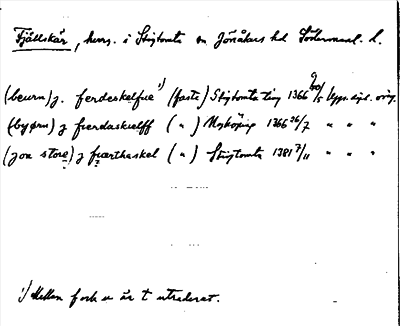 Fjällskär, hmn. i Stigtomta sn Jönåkers hd Södermanl. l.
(beurn) j. ferdeskelfue ¹) (faste) Stigtomta ting 1366 20/5 Upps. dipl. orig.
(byørn) j fierdaskielff ( " ) Nyköping 1366 26/7 " " "
(jon store) j fiærthaskel ( " ) Stigtomta 1381 7/11 " " "
¹) Mellan f och u är t utraderat.